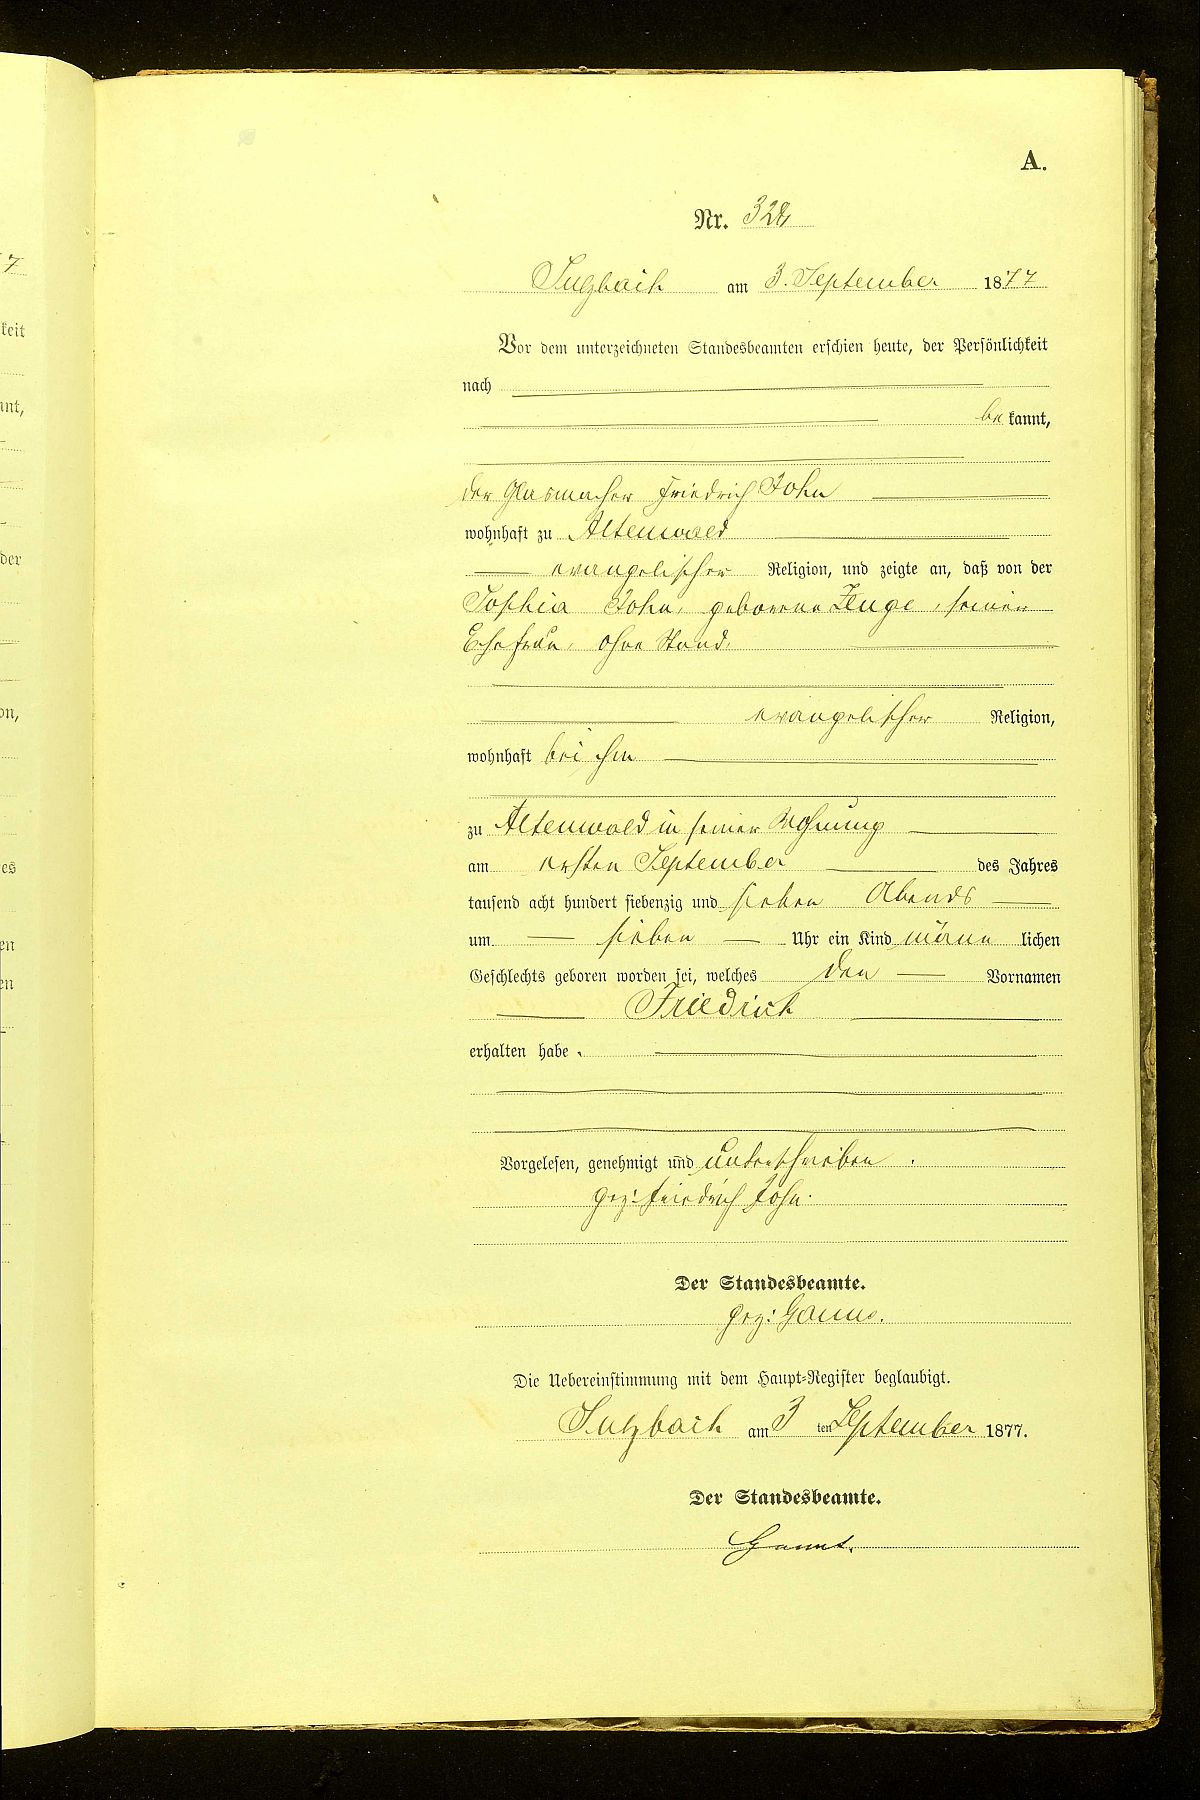 7
keit
ant,
der
on,
es
en
en
A.
Nr. 328
Sulzbach am 3. September 1877
Vor dem unterzeichneten Standesbeamten erschien heute, der Persönlichkeit
nach
be kannt,
der Glasmacher Friedrich John
wohnhaft zu Altenwald
evangelischer Religion, und zeigte an, daß von der
Sophia John, geborene Zenge, seiner
Ehefrau, ohne Stand,
evangelischer Religion,
wohnhaft bei ihm
zu Altenwald in seiner Wohnung
am ersten September des Jahres
tausend acht hundert siebenzig und sieben Abends
um sieben Uhr ein Kind männ lichen
Geschlechts geboren worden sei, welches den Vornamen
Friedrich
erhalten habe.
Vorgelesen, genehmigt und unterschrieben.
gez: Friedrich John.
Der Standesbeamte.
gez:
Die Uebereinstimmung mit dem Haupt-Register beglaubigt.
Sulzbach am 3 ten September 1877.
Der Standesbeamte.